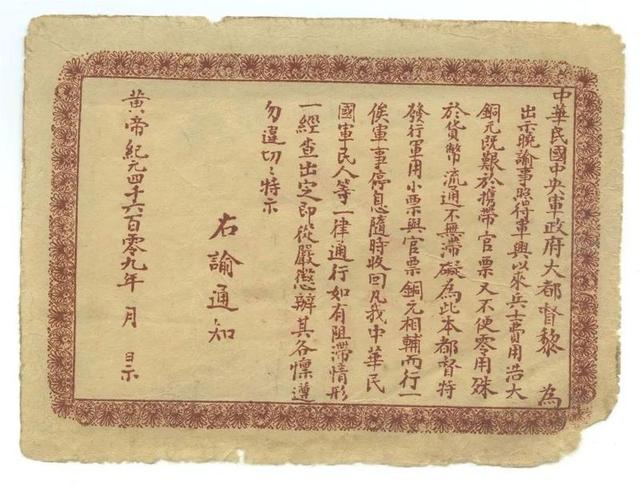 中華民國中央軍政府大都督黎　為
出示曉諭事照得軍興以來兵士費用浩大
銅元既艱於攜帶官票又不便零用殊
於貨幣流通不無滯礙為此本都督特
發行軍用小票與官票銅元相輔而行一
俟軍事停息隨時收回凡我中華民
國軍民人等一律通行如有阻滯情形
一經查出定即從嚴懲辦其各懍遵
勿違切々特示
右諭通知
黃帝紀元四千六百零九年　月　日示